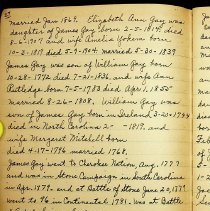 married Jan 1869. Elizabeth Ann Gay was
daughter of James Gay born 2-5-1814. died
8-6-1907 and wife Amelia Yokem born
10-2-1819 died 5-9-1904 married 5-30-1839
James Gay was son of William Gay born
10-28-1772 died 7-21-1836, and wife Ann
Rutledge born 7-5-1783 died Apr 1, 1855
married 8-26-1808. William Gay was
son of James Gay born in Ireland 3-21-1744
died in North Carolina 2- -1817. and
wife Margaret Mitchell born
died 4-17-1796 married 1768.
James Gay went to Cherokee Nation, Aug. 1777
and was in Stono Campaign in South Carolina
in Apr. 1779. and at Battle of Stono June 20, 1779
went 76 in Continental, 1781. Was at Battle